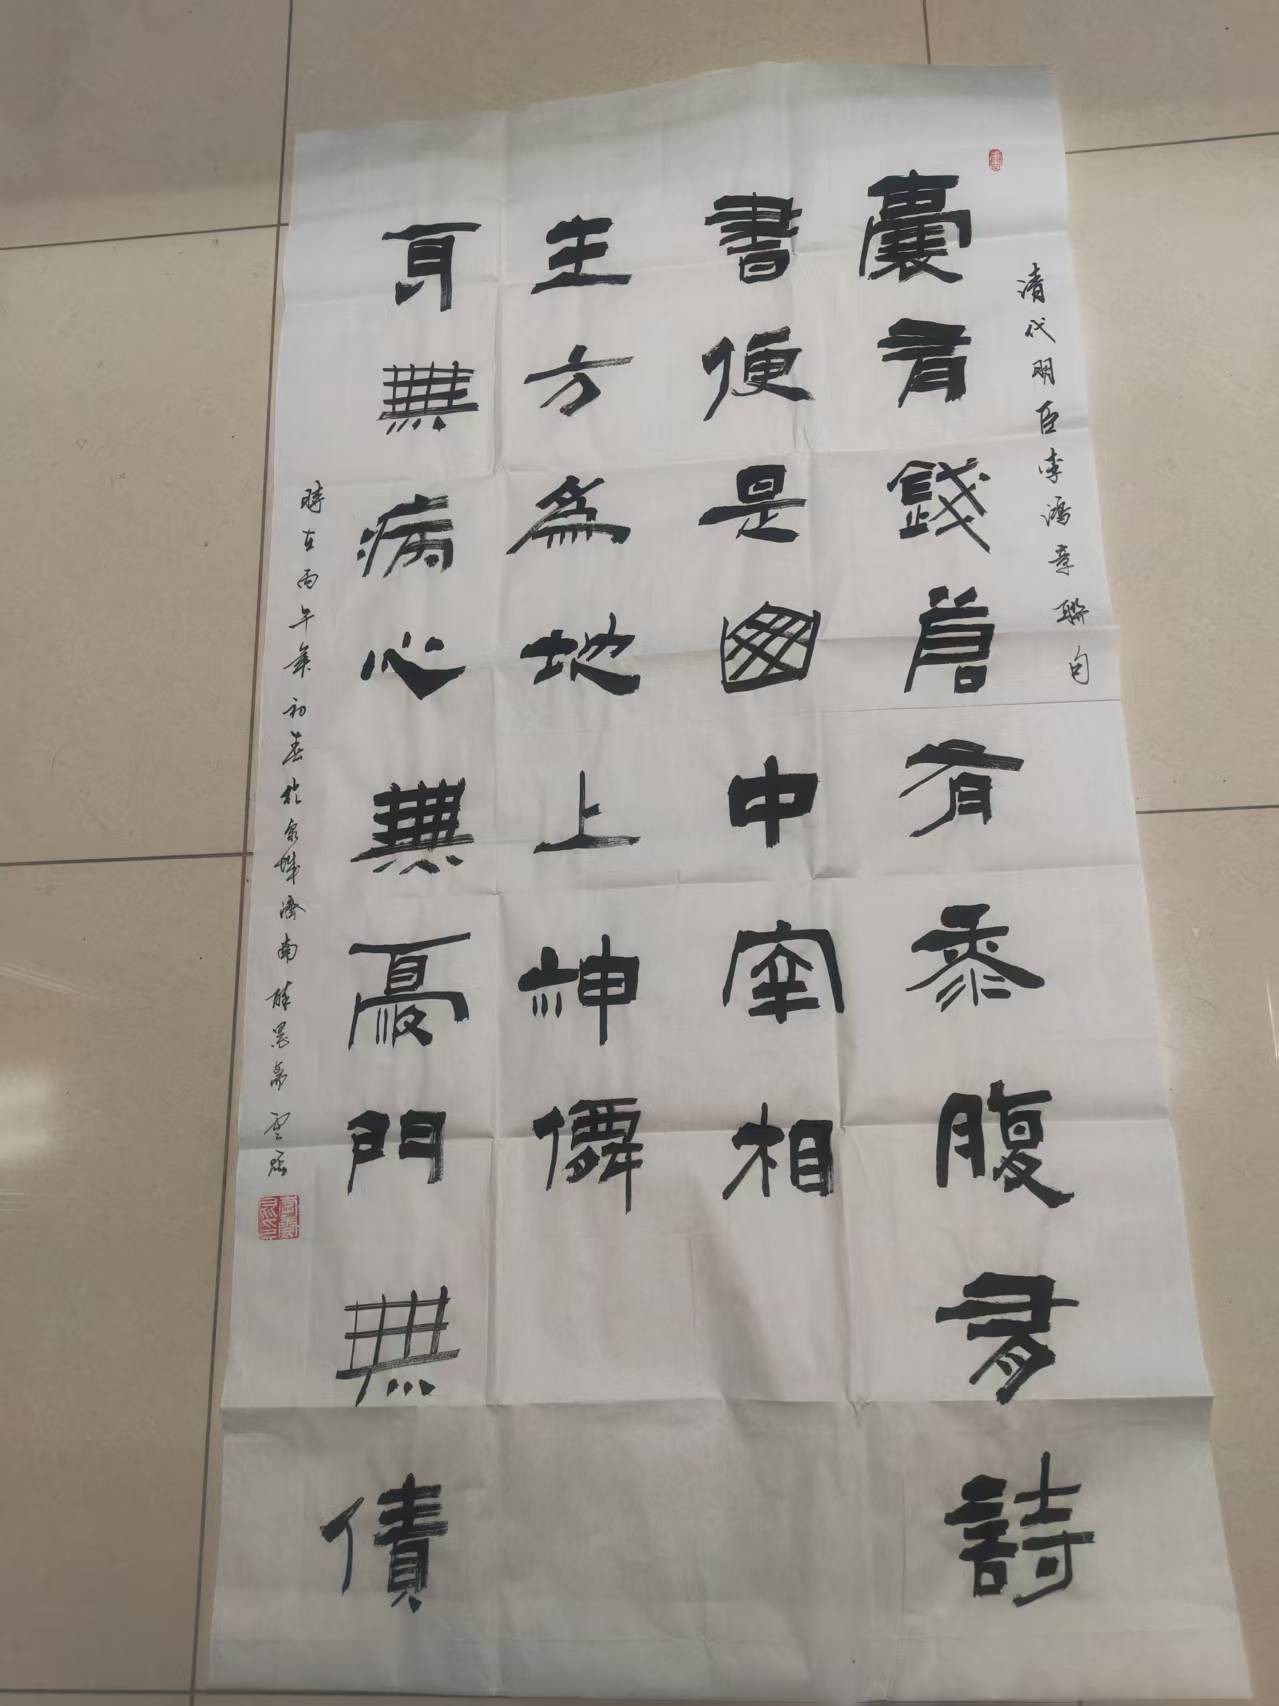 清代明臣李鴻章聯句
囊有錢倉有黍腹有詩
書便是中宰相
身無病心無憂門無債
主方為地上神僊
時在丙午年初春於泉城濟南醉墨斋雲